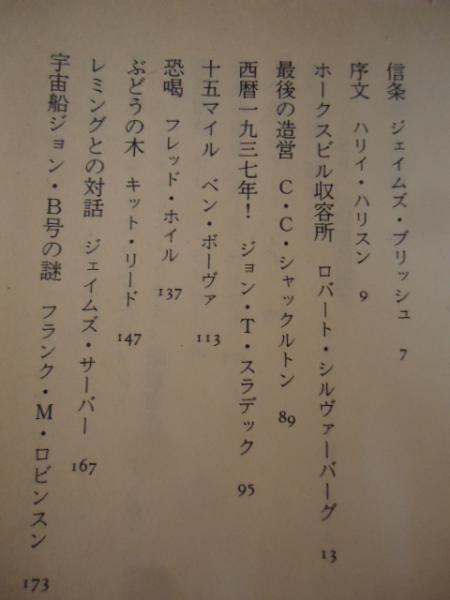 信条 ジェイムズ・ブリッシュ 7
序文 ハリイ・ハリスン 9
ホークスビル収容所 ロバート・シルヴァーバーグ 13
最後の造営 C・C・シャックルトン 89
西暦一九三七年! ジョン・T・スラデック 95
十五マイル ベン・ボーヴァ 113
恐喝 フレッド・ホイル 137
ぶどうの木 キット・リード 147
レミングとの対話 ジェイムズ・サーバー 167
宇宙船ジョン・B号の謎 フランク・M・ロビンスン 173